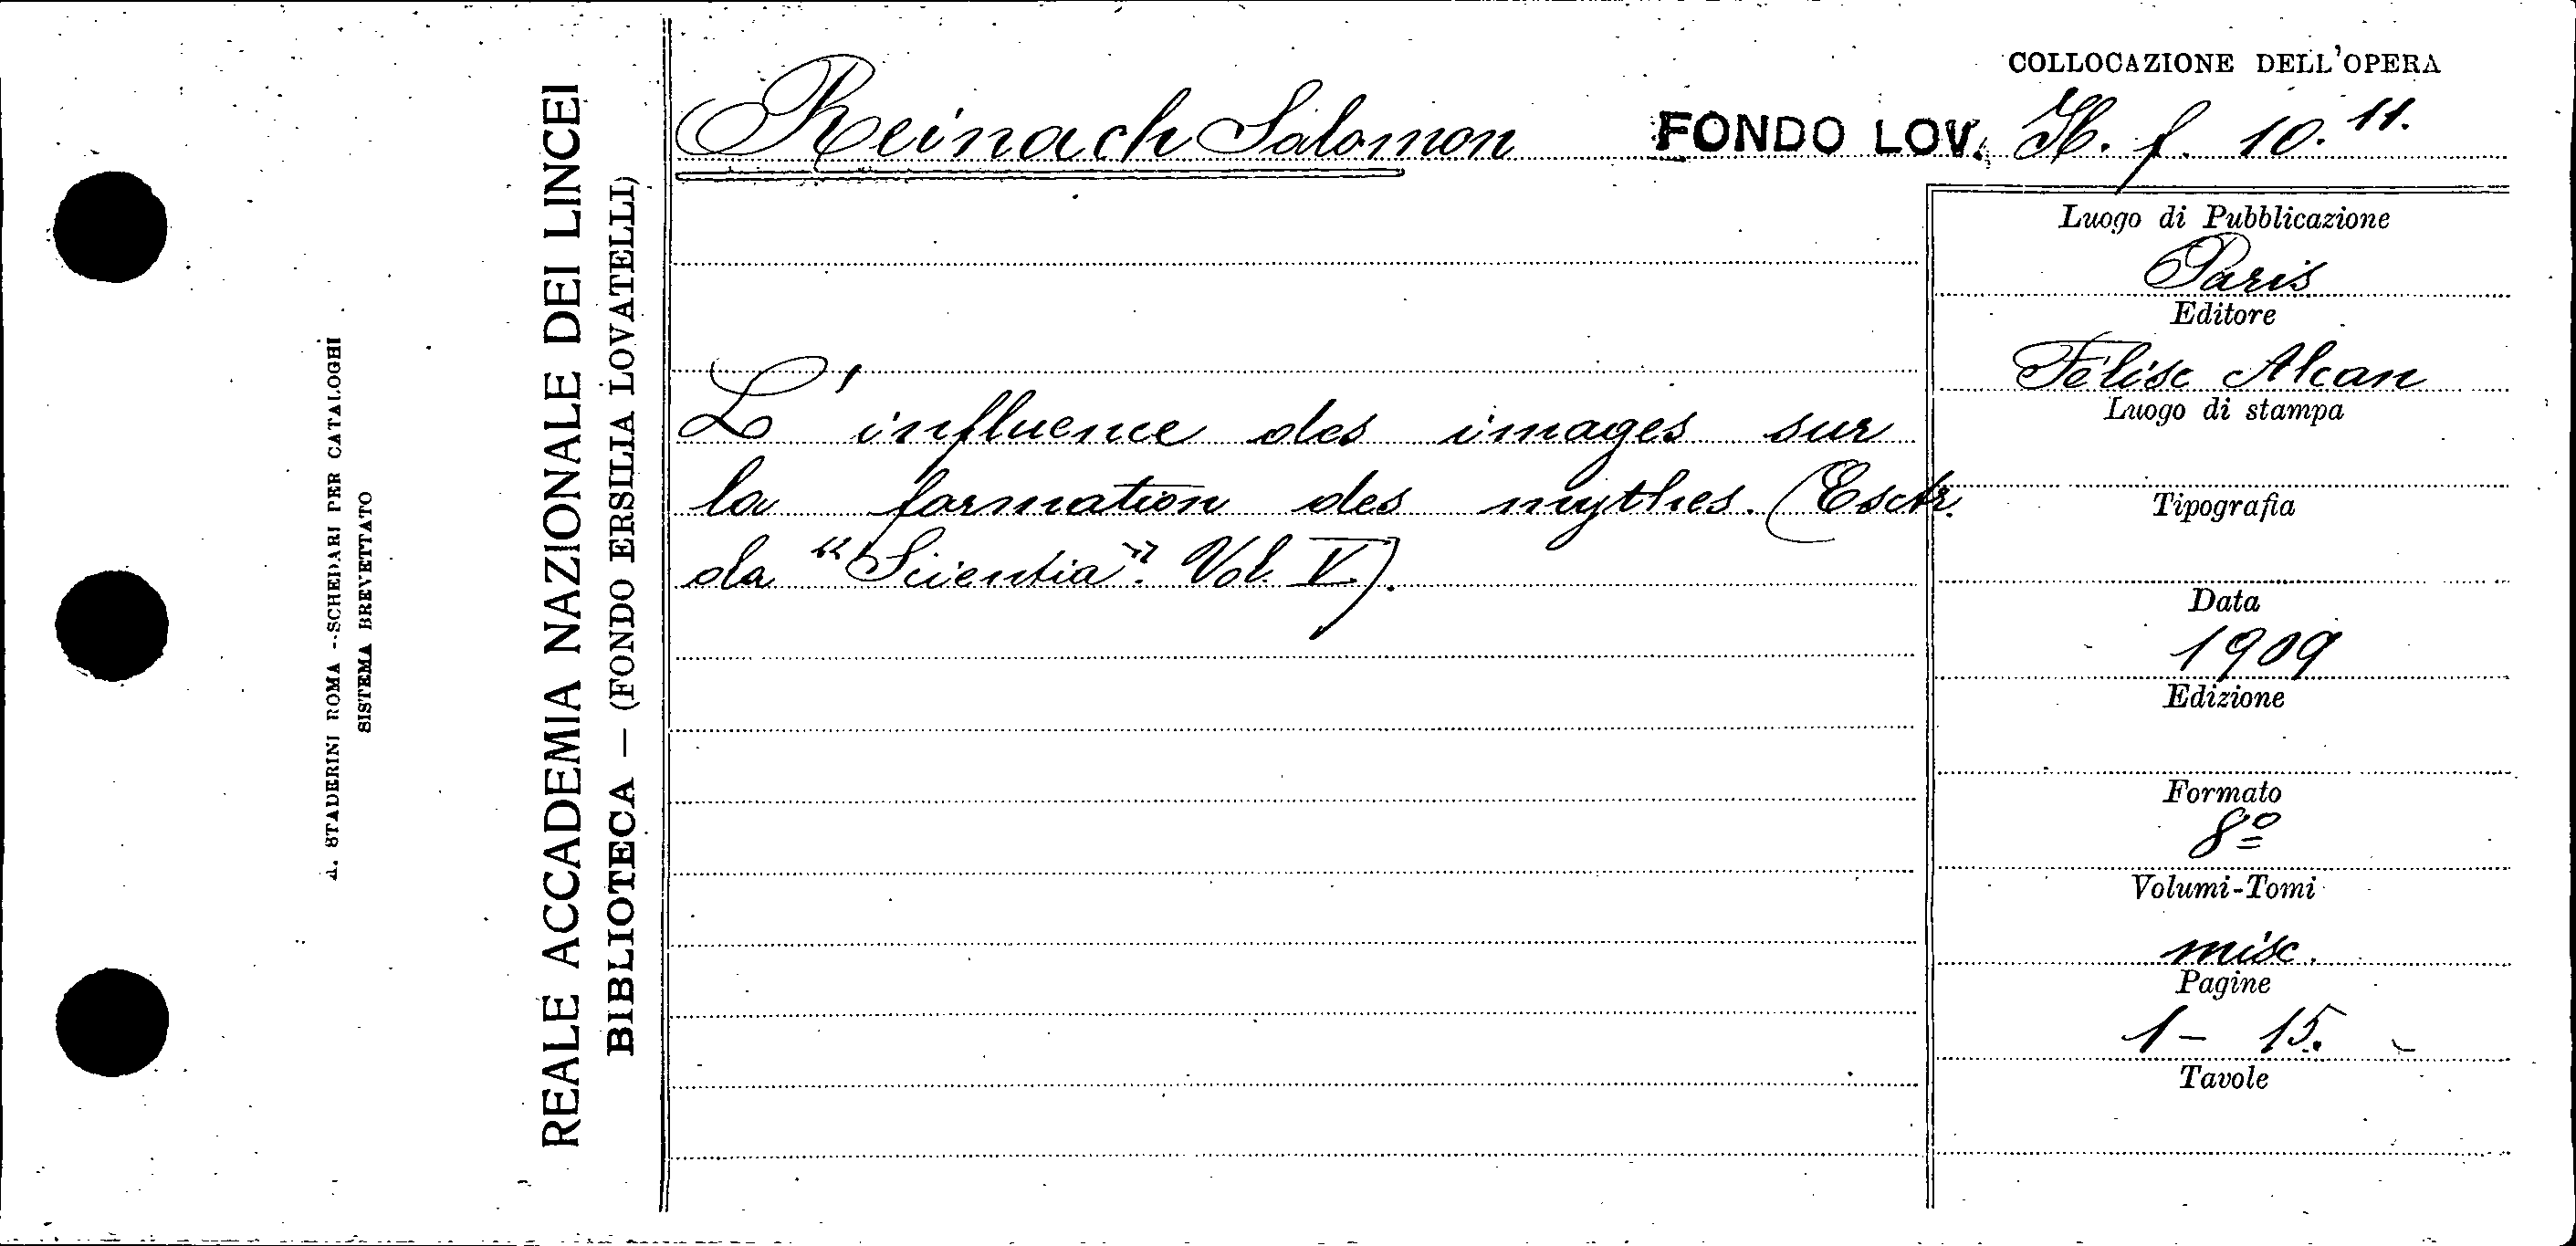 COLLOCAZIONE DELL'OPERA
Reinach Salomon
FONDO LOV. H. f. 10. 11.
L'influence des images sur
la formation des mythes. (Estr.
da "Scientia". Vol. V.).
Luogo di Pubblicazione
Paris
Editore
Félix Alcan
Luogo di stampa
Tipografia
Data
1909
Edizione
Formato
8º
Volumi-Tomi
misc.
Pagine
1 - 15.
Tavole
REALE ACCADEMIA NAZIONALE DEI LINCEI
BIBLIOTECA — (FONDO ERSILIA LOVATELLI)
A. STADERINI ROMA --SCHEDARI PER CATALOGHI
SISTEMA BREVETTATO